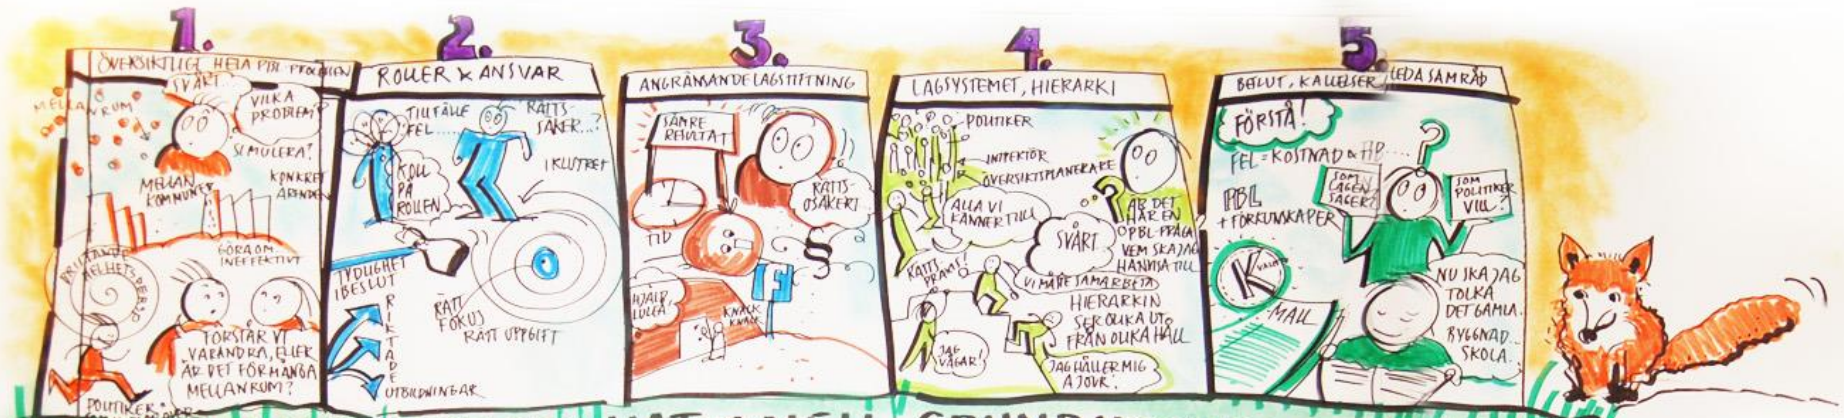 1.
ÖVERSIKTLIGT HELA PBL-PROCESSEN
SVÅRT...
MELLANRUM
VILKA
PROBLEM?
SIMULERA?
MELLAN
KOMMUNER
KONKRET
ÄRENDEN
GÖRA OM
INEFFEKTIVT
BRISTANDE
HELHETS
FÖRSTÅR VI
VARANDRA, ELLER
ÄR DET FÖR MÅNGA
MELLANRUM?
POLITIKER
2.
ROLLER & ANSVAR
TILLFÄLLE
FEL.....
RÄTTS-
SÄKER...?
KOLL
PÅ
ROLLEN
I KLISTRET
TYDLIGHET
I BESLUT
RÄTT
FOKUS
RÄTT UPPGIFT
RIKTADE
UTBILDNINGAR
3.
ANGRÄNSANDE LAGSTIFTNING
SÄMRE
RESULTAT
RÄTTS-
OSÄKERT
TID
§
HJÄLP
LULEÅ
KNACK
KNACK
F
4.
LAGSYSTEMET, HIERARKI
POLITIKER
INSPEKTÖR
ÖVERSIKTSPLANERARE
ALLA VI
KÄNNER TILL
?
ÄR DET
HÄR EN
PBL-FRÅGA
VEM SKA JAG
HÄNVISA TILL
SVÅRT
RÄTTS-
PRAXIS?
VI MÅSTE SAMARBETA
HIERARKIN
SER OLIKA UT
FRÅN OLIKA HÅLL
JAG
VÄGAR!
JAG HÅLLER MIG
A JOUR!
5.
BESLUT, KALLELSER, LEDA SAMRÅD
FÖRSTÅ!
FEL = KOSTNAD &
?
SOM
LAGEN
SÄGER?
SOM
POLITIKER
VILL?
PBL
+ FÖRKUNSKAPER
K
MALL
NU SKA JAG
TOLKA
DET GAMLA.
BYGGNAD...
SKOLA..